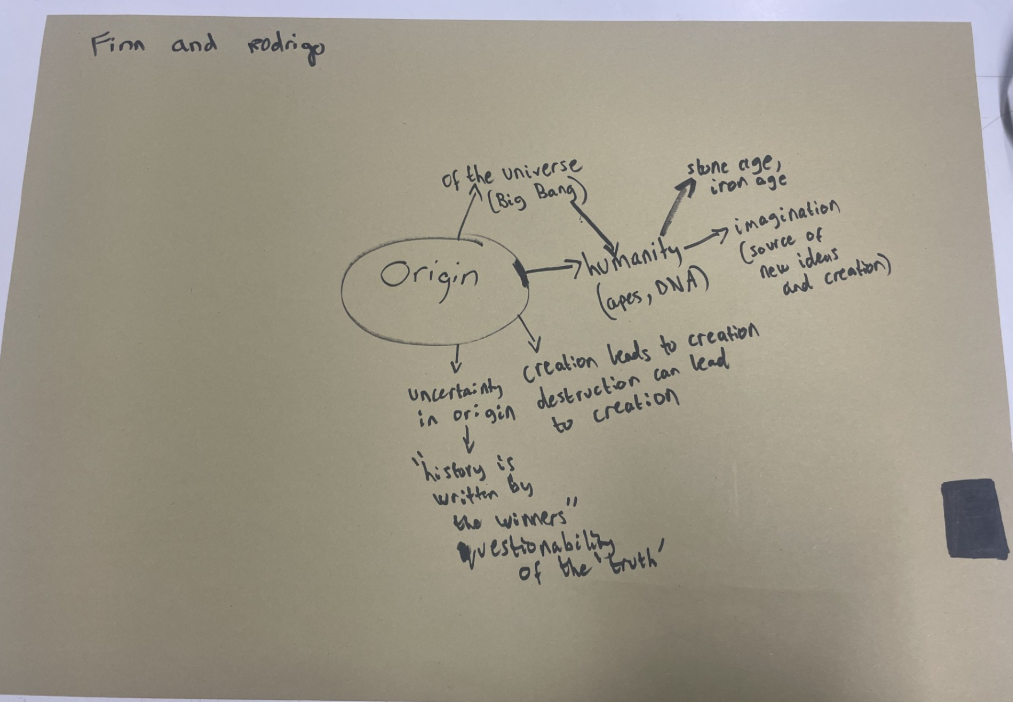 Finn and Rodrigo
of the universe
(Big Bang)
stone age,
iron age
Origin
humanity
(apes, DNA)
imagination
(source of
new ideas
and creation)
creation leads to creation
destruction can lead
to creation
uncertainty
in origin
"history is
written by
the winners"
questionability
of the 'truth'